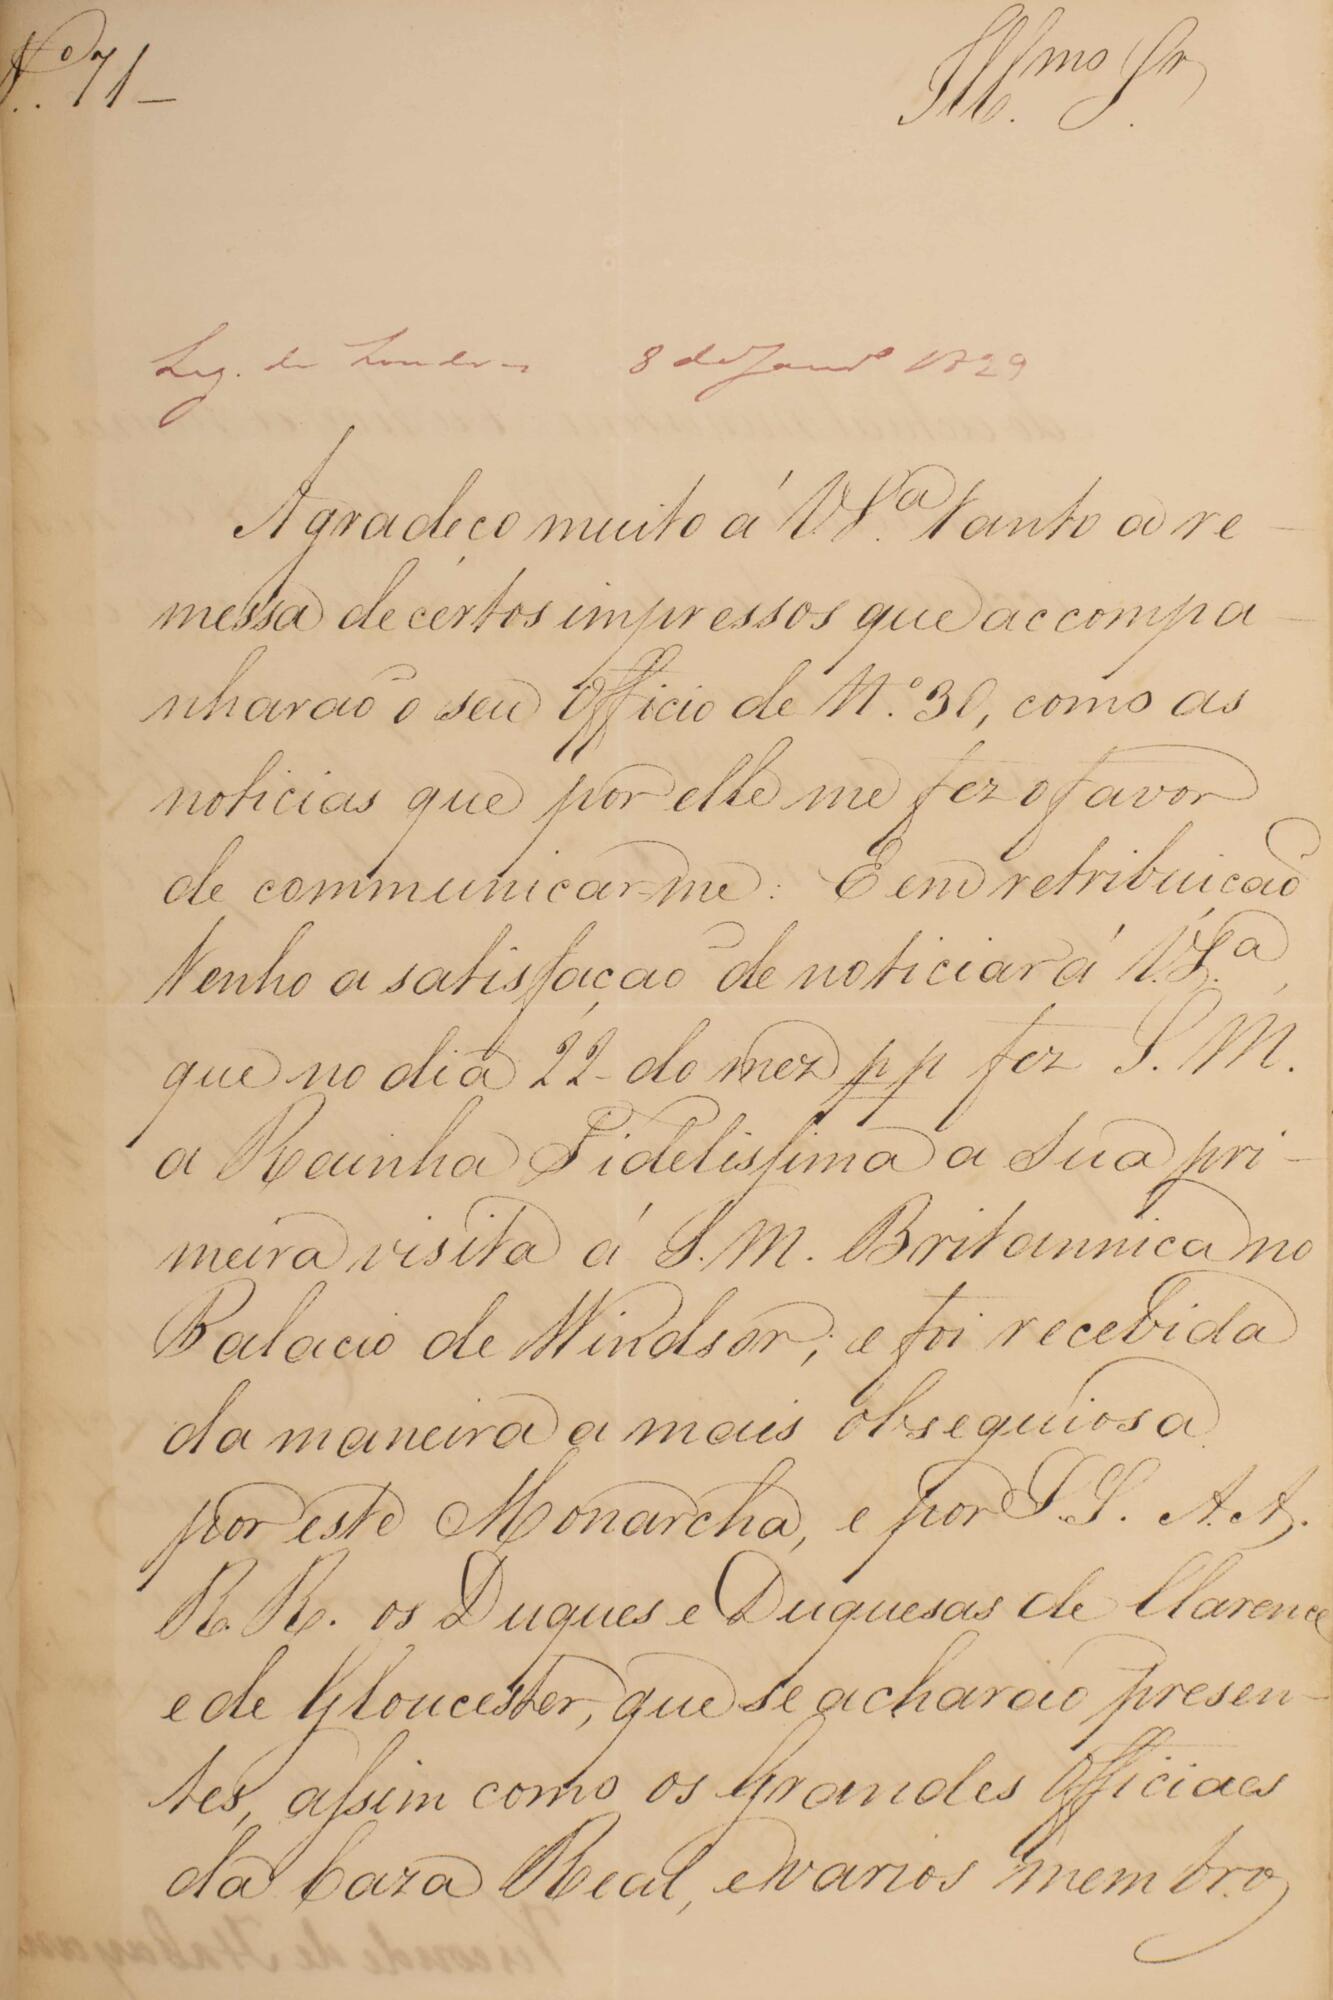 N.º 71_
Ill.mo Sr.
Leg. de Londres 8 de Janrº 1829
Agradeço muito á V.S.ª tanto a re-
messa de certos impressos que accompa-
nharaõ o seu Officio de N.º 30, como as
noticias que por elle me fez o favor
de communicar-me: E em retribuiçaõ
tenho a satisfaçaõ de noticiar á V.S.ª,
que no dia 22 do mez pp fez S. M.
a Rainha Fidelissima a sua pri-
meira visita á S. M. Britannica no
Palacio de Windsor; e foi recebida
da maneira a mais obsequiosa
por este Monarcha, e por S.S. A.A.
R.R. os Duques e Duquesas de Clarence
e de Gloucester, que se acharaõ presen-
tes, assim como os Grandes Officiaes
da Caza Real, e varios membros
Visconde de Itabayana